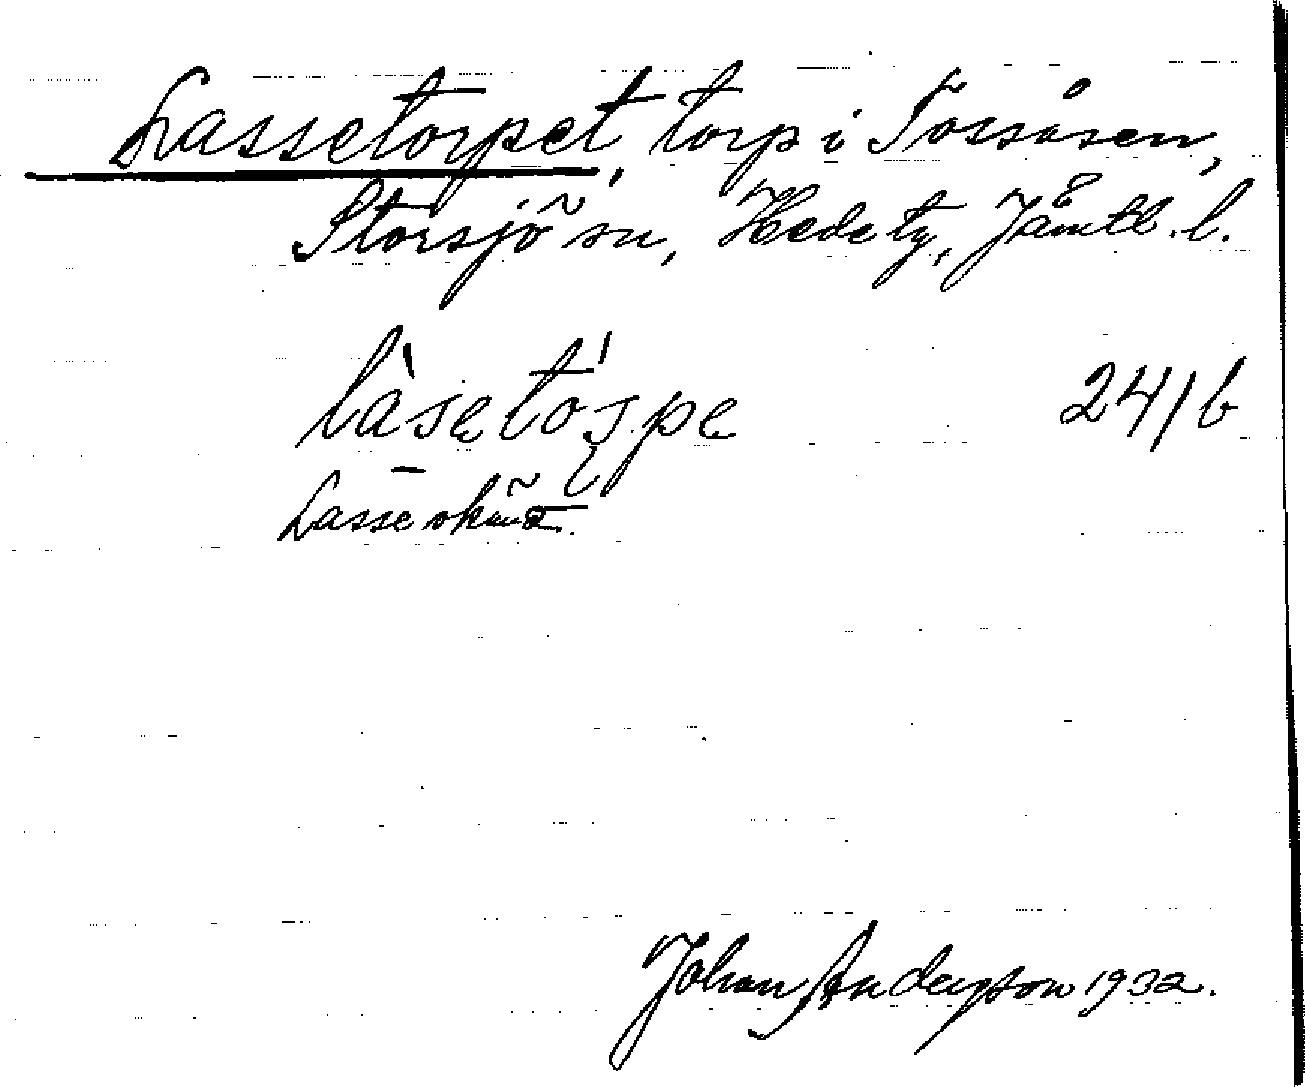 Lassetorpet, torp i Tossåsen,
Storsjö sn, Hede tg, Jämtl. l.
låsetòspe 24/6
Lasse
Johan Anderson 1932.